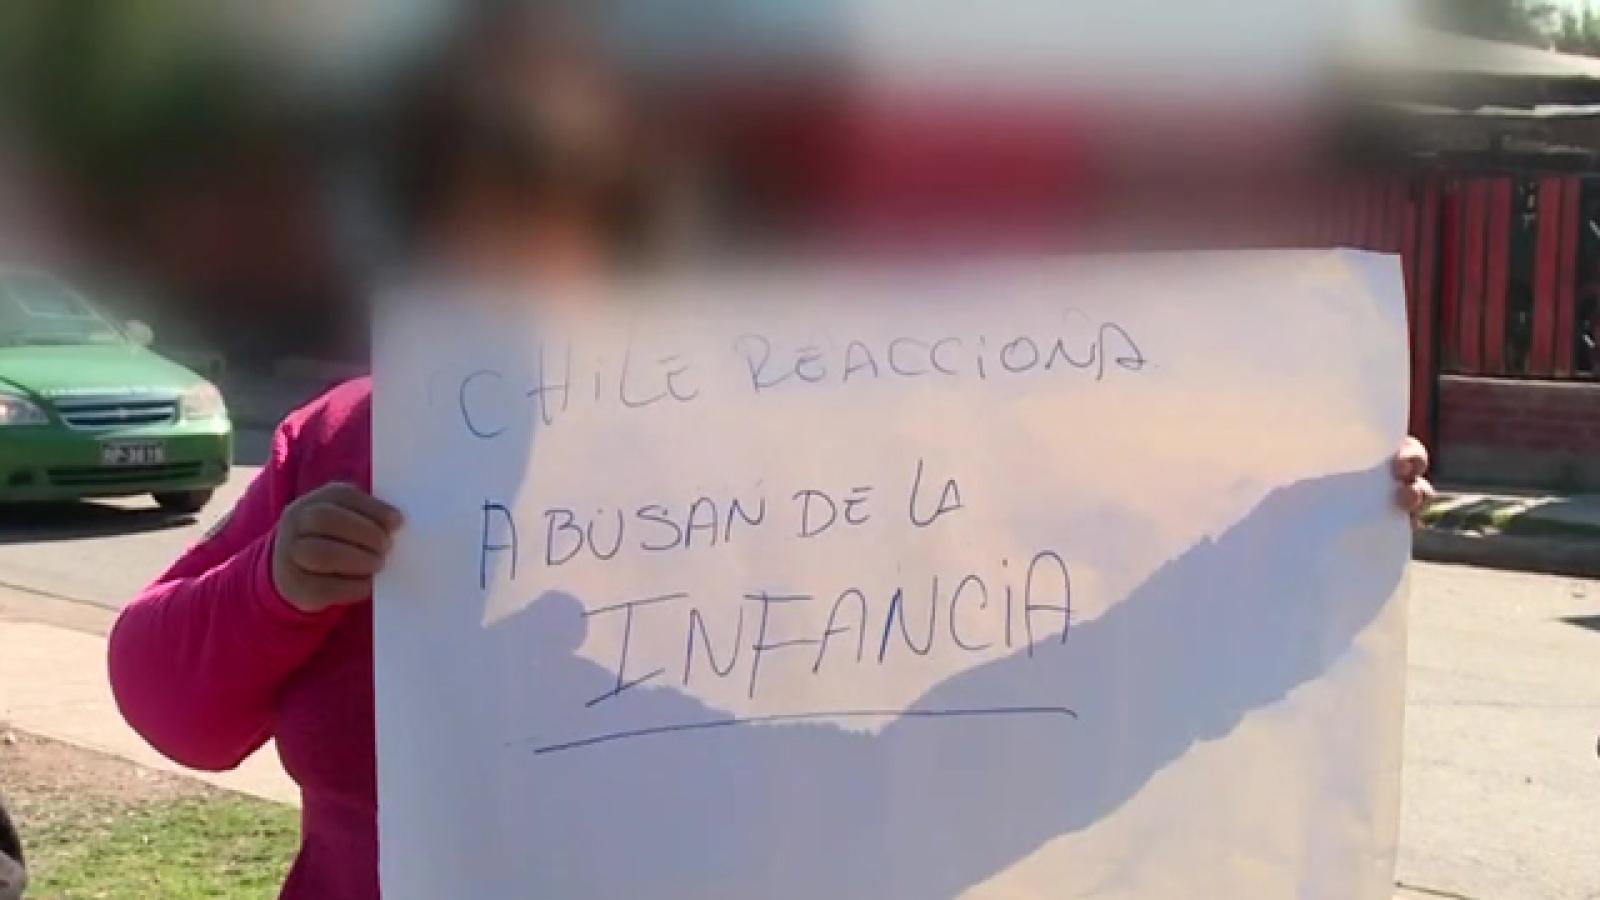 CHILE REACCIONA
ABUSAN DE LA
INFANCIA